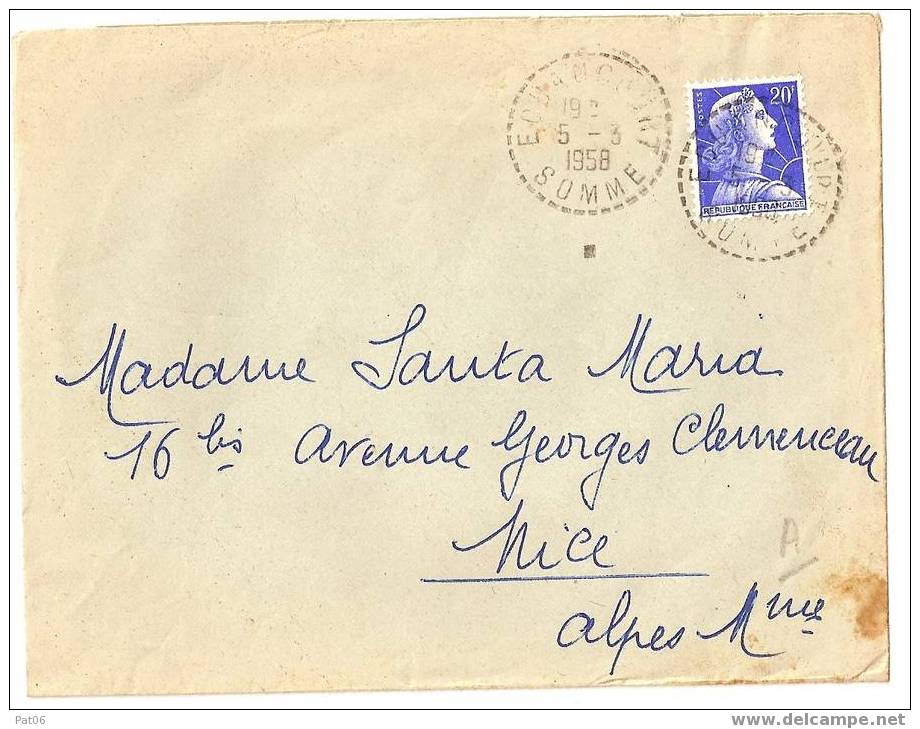 19
5 - 3
1958
SOMME
POSTES
20F
REPUBLIQUE FRANCAISE
Madame Santa Maria
16 bis avenue Georges Clemenceau
Nice
A
Alpes Mmes
Pat06
www.delcampe.net